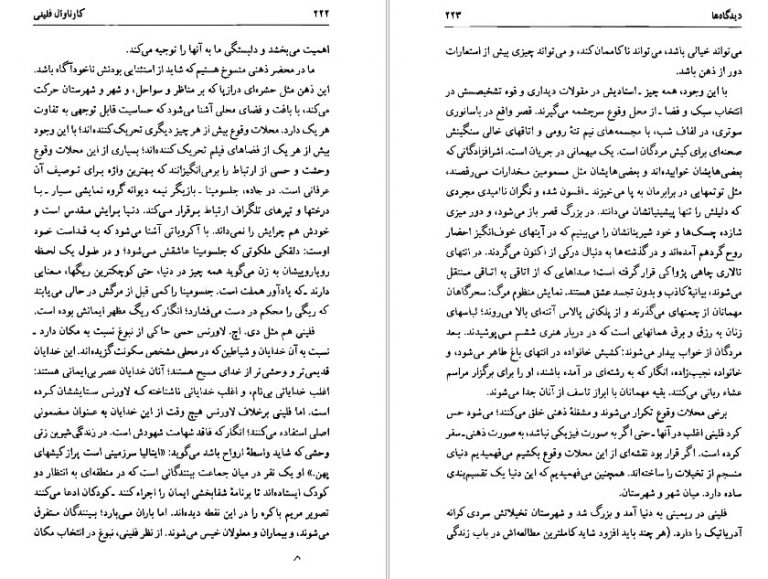 ۲۲۲ کارناوال فلینی
اهمیت می‌بخشد و دلبستگی ما به آنها را توجیه می‌کند.
ما در محضر ذهنی منسوخ هستیم که شاید از استثنایی بودنش ناخودآگاه باشد.
این ذهن مثل حشره‌ای درازپا که بر مناظر و سواحل، و شهر و شهرستان حرکت
می‌کند، با بافت و فضای محلی آشنا می‌شود که حساسیت قابل توجهی به تفاوت
هر یک دارد. محلات وقوع بیش از هر چیز دیگری تحریک‌کننده‌اند؛ با این وجود
بیش از هر یک از فضاهای فیلم تحریک‌کننده‌اند؛ بسیاری از این محلات وقوع
وحشت و حسی از ارتباط را برمی‌انگیزانند که بهترین واژه برای توصیف آن
عرفانی است. در جاده، جلسومینا ـ بازیگر نیمه دیوانه گروه نمایشی سیار ـ با
درختها و تیرهای تلگراف ارتباط برقرار می‌کند. دنیا برایش مقدس است و
خودش هم چرایش را نمی‌داند. با آکروباتی آشنا می‌شود که به قداست خود
اوست: دلقکی ملکوتی که جلسومینا عاشقش می‌شود؛ و در طول یک لحظه
رویاروییشان به زن می‌گوید همه چیز در دنیا، حتی کوچکترین ریگها، معنایی
دارند ـ که یادآور هملت است. جلسومینا را کمی قبل از مرگش در حالی می‌یابند
که ریگی را محکم در دست می‌فشارد؛ انگار که ریگ مظهر ایمانش بوده است.
فلینی هم مثل دی. اچ. لاورنس حسی حاکی از نبوغ نسبت به مکان دارد ـ
نسبت به آن خدایان و شیاطین که در محلی مشخص سکونت گزیده‌اند. این خدایان
قدیمی‌تر و وحشی‌تر از خدای مسیح هستند؛ آنان خدایان عصر بی‌ایمانی هستند:
اغلب خدایانی بی‌نام، و اغلب خدایانی ناشناخته که لاورنس ستایششان کرده
است. اما فلینی برخلاف لاورنس هیچ وقت از این خدایان به عنوان مضمونی
اصلی استفاده نمی‌کند؛ انگار که فاقد شهامت شهودش است. در زندگی شیرین زنی
وحشی که شاید واسطهٔ ارواح باشد می‌گوید: «ایتالیا سرزمینی است پراز کیشهای
پهن.» او یک نفر در میان جماعت بینندگانی است که در منطقه‌ای به انتظار دو
کودک ایستاده‌اند تا برنامهٔ شفابخشی ایمان را اجرا کنند ـ کودکان ادعا می‌کنند
تصویر مریم باکره را در این نقطه دیده‌اند. اما باران می‌بارد؛ بینندگان متفرق
می‌شوند، و بیماران و معلولان خیس می‌شوند. از نظر فلینی، نبوغ در انتخاب مکان
۸
دیدگاه‌ها ۲۲۳
می‌تواند خیالی باشد، می‌تواند ناکاممان کند، و می‌تواند چیزی بیش از استعارات
دور از ذهن باشد.
با این وجود، همه چیز ـ استادیش در مقولات دیداری و قوه تشخیصش در
انتخاب سبک و فضا ـ از محل وقوع سرچشمه می‌گیرند. قصر واقع در باسانوری
سوتری، در لفاف شب، با مجسمه‌های نیم تنهٔ رومی و اتاقهای خالی سنگینش
صحنه‌ای برای کیش مردگان است. یک میهمانی در جریان است. اشرافزادگانی که
بعضی‌هایشان خوابیده‌اند و بعضی‌هایشان مثل مسمومین مخدرات می‌رقصند،
مثل توتمهایی در برابرمان به پا می‌خیزند ـ افسون شده، و نگران ناامیدی مجردی
که دلیلش را تنها پیشینیانشان می‌دانند. در بزرگ قصر باز می‌شود، و دور میزی
شازده چسک‌ها و خود شیرینانشان را می‌بینیم که در آینهای خوف‌انگیز احضار
روح گردهم آمده‌اند و در گذشته‌ها به دنبال درکی از اکنون می‌گردند. در انتهای
تالاری چاهی پژواکی قرار گرفته است؛ صداهایی که از اتاقی به اتاقی منتقل
می‌شوند، بیانیهٔ کاذب و بدون تجسد عشق هستند. نمایش منظوم مرگ: سحرگاهان
مهمانان از چمنهای می‌گذرند و از پلکانی پالاس آتنه‌ای بالا می‌روند؛ لباسهای
زنان به رزق و برق همانهایی است که در دربار هنری ششم می‌پوشیدند. بعد
مردگان از خواب بیدار می‌شوند: کشیش خانواده در انتهای باغ ظاهر می‌شود، و
خانواده نجیب‌زاده، انگار که به رشته‌ای در آمده باشند، او را برای برگزار مراسم
عشاء ربانی می‌کنند. بقیه مهمانان با ابراز تاسف از آنان جدا می‌شوند.
برخی محلات وقوع تکرار می‌شوند و مشغلهٔ ذهنی خلق می‌کنند؛ می‌شود حس
کرد فلینی اغلب در آنها ـ حتی اگر به صورت فیزیکی نباشد، به صورت ذهنی ـ سفر
کرده است. اگر قرار بود نقشه‌ای از این محلات وقوع بکشیم می‌فهمیدیم دنیای
منسجم از تخیلات را ساخته‌اند. همچنین می‌فهمیدیم که این دنیا یک تقسیم‌بندی
ساده دارد. میان شهر و شهرستان.
فلینی در ریمینی به دنیا آمد و بزرگ شد و شهرستان تخیلاتش سردی کرانه
آدریاتیک را دارد. (هر چند باید افزود شاید کاملترین مطالعه‌اش در باب زندگی